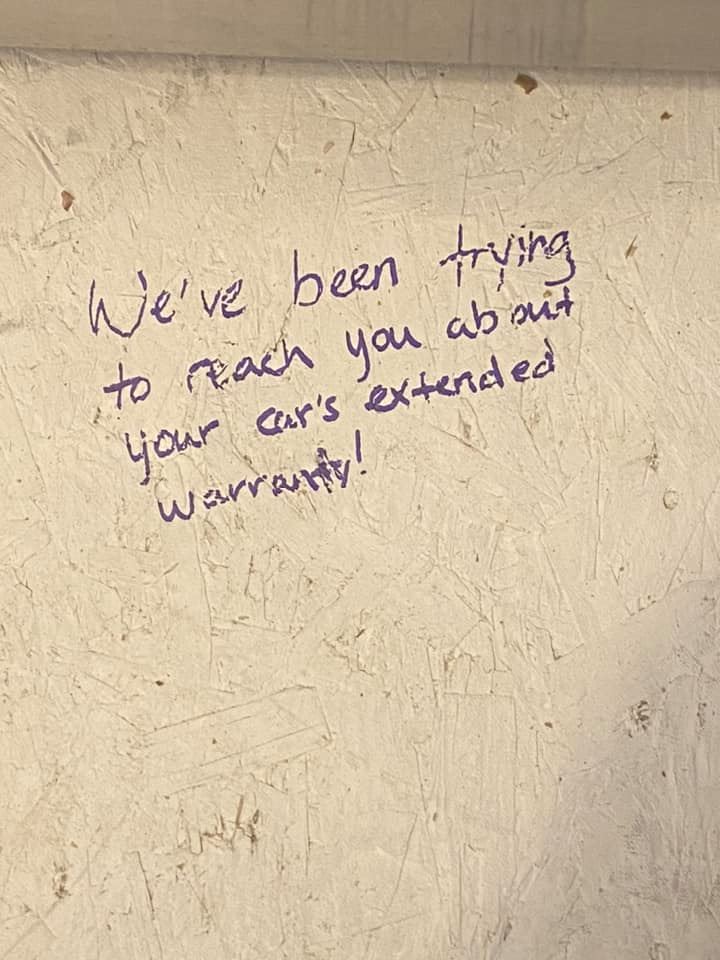 We've been trying
to reach you about
your car's extended
warranty!